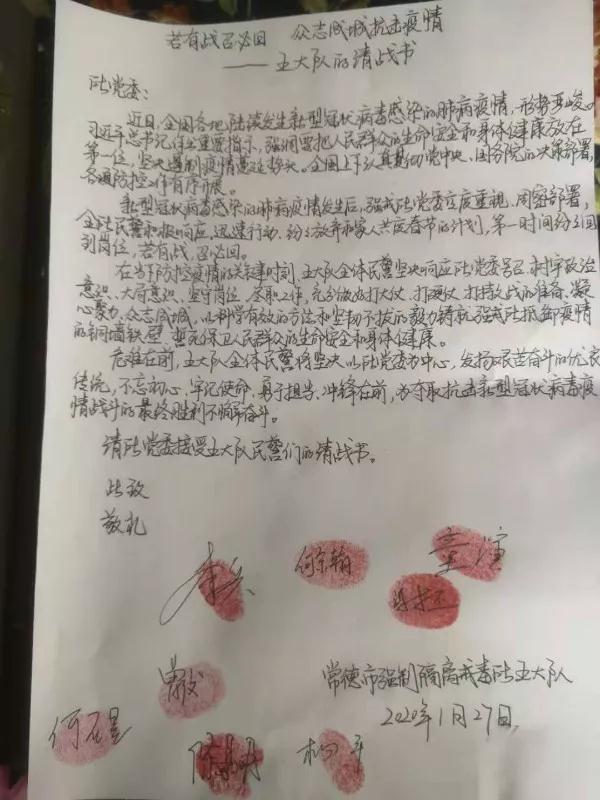 若有战召必回 众志成城抗击疫情
——五大队的请战书
所党委:
近日,全国各地陆续发生新型冠状病毒感染的肺病疫情,形势严峻。
习近平总书记作出重要指示,强调要把人民群众的生命安全和身体健康放在
第一位,坚决遏制疫情蔓延势头。全国上下认真贯彻党中央、国务院的决策部署,
各项防控工作有序开展。
新型冠状病毒感染的肺病疫情发生后,强戒所党委高度重视、周密部署,
全所民警积极响应,迅速行动,纷纷放弃和家人共度春节的计划,第一时间纷纷回
到岗位,若有战,召必回。
在当下防控疫情的关键时刻,五大队全体民警坚决响应所党委号召,树牢政治
意识、大局意识,坚守岗位、尽职工作,充分做好打大仗、打硬仗、打持久战的准备、凝
心聚力、众志成城、以科学有效的方法和坚韧不拔的毅力铸就强戒所抵御疫情
的铜墙铁壁,誓死保卫人民群众的生命安全和身体健康。
危难在前,五大队全体民警将坚决以所党委为中心,发扬艰苦奋斗的优良
传统,不忘初心、牢记使命、勇于担当、冲锋在前,为夺取抗击新型冠状病毒疫
情战斗的最终胜利不懈奋斗。
请所党委接受五大队民警们的请战书。
此致
敬礼
何宗翰
常德市强制隔离戒毒所五大队
2020年1月27日.